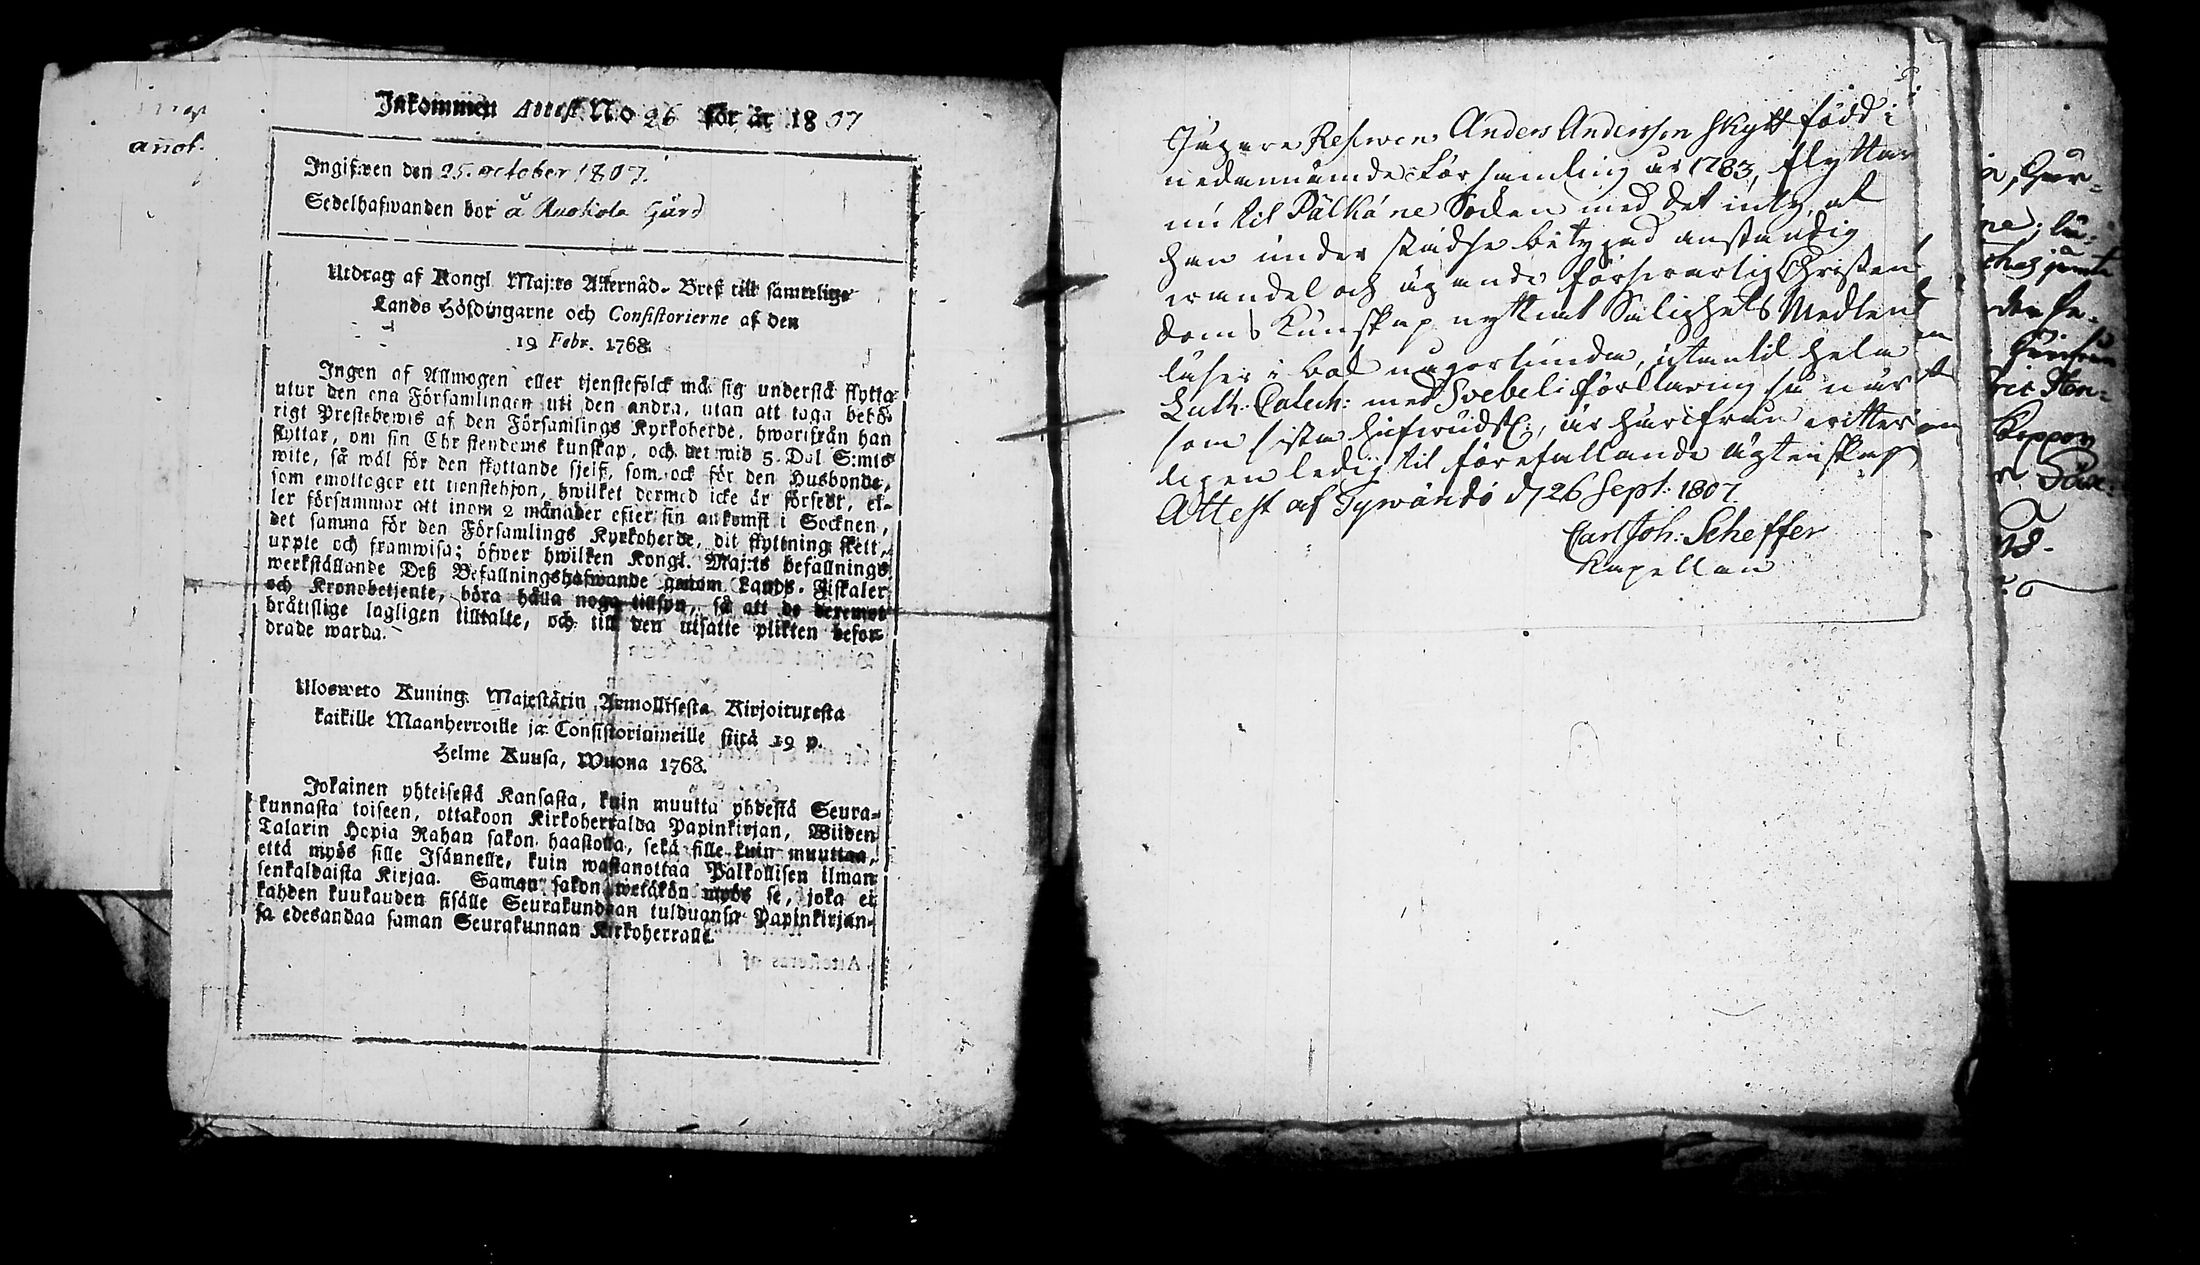 Inkommen Attest No 26 för år 1807
Ingifwen den 25. october 1807.
Sedelhafwanden bor å Ruokola Gård
Utdrag af Kongl Maj:ts Allernåd. Bref till samtelige
Lands Höfdingarne och Consistorierne af den
19 Febr. 1768.
Ingen af Allmogen eller tjenstefölck må sig understå flytta
utur den ena Församlingen uti den andra, utan att taga behö-
rigt Prestebewis af den Församlings Kyrkoherde, hwarifrån han
flyttar, om sin Christendoms kunskap, och det wid 5 Dal S:mts
wite, så wäl för den flyttande sjelf, som ock för den Husbonde,
som emottager ett tienstehjon, hwilket dermed icke är försedt, el-
ler försummar att inom 2 månader efter sin ankomst i Socknen,
det samma för den Församlings Kyrkoherde, dit flyttning skett,
uppte och framwisa; öfwer hwilken Kongl. Maj:ts befallnings
werkställande Deß Befallningshafwande genom Lands-Fiskaler
och Kronobetjente, böra hålla noga tillsyn, så att de deremot
bråttslige lagligen tilltalte, och till den utsatte plikten befor-
drade warda.
Ulosweto Kuning. Majestätin Armollisesta Kirjoituxesta
kaikille Maanherroille ja Consistoriumeille siitä 19 p.
Helme Kuusa, Wuona 1768.
Jokainen yhteisestä Kansasta, kuin muutta yhdestä Seura-
kunnasta toiseen, ottakoon Kirkoherralda Papinkirjan, Wiiden
Talarin Hopia Rahan sakon haastolla, sekä sille kuin muuttaa,
että myös sille Isännelle, kuin wastanottaa Palkollisen ilman
senkaldaista Kirjaa. Saman sakon wetäkön myös se, joka ei
kahden kuukauden sisälle Seurakundaan tulduansa Papinkirjan-
sa edesandaa saman Seurakunnan Kirkoherralle.
Attesteras af
annot.
Jägare Reserven Anders Andersson Skytt född i
nedannämde Församling år 1783, flyttar
nu til Pälkäne Soken med det intyg, at
han under städse betygad anständig
wandel och ägande försvarlig Christen
doms Kunskap nyttiat Salighets Medlen
läser i bok någorlunda, utantil hela
Luth. Catech: med Svebeli förklaring så när
som sista hufwudst:, är härifrån witter
ligen ledig til förefallande ägtenskap
Attest af Tywändö d 26 Sept: 1807.
Carl Joh: Scheffer
Kapellan